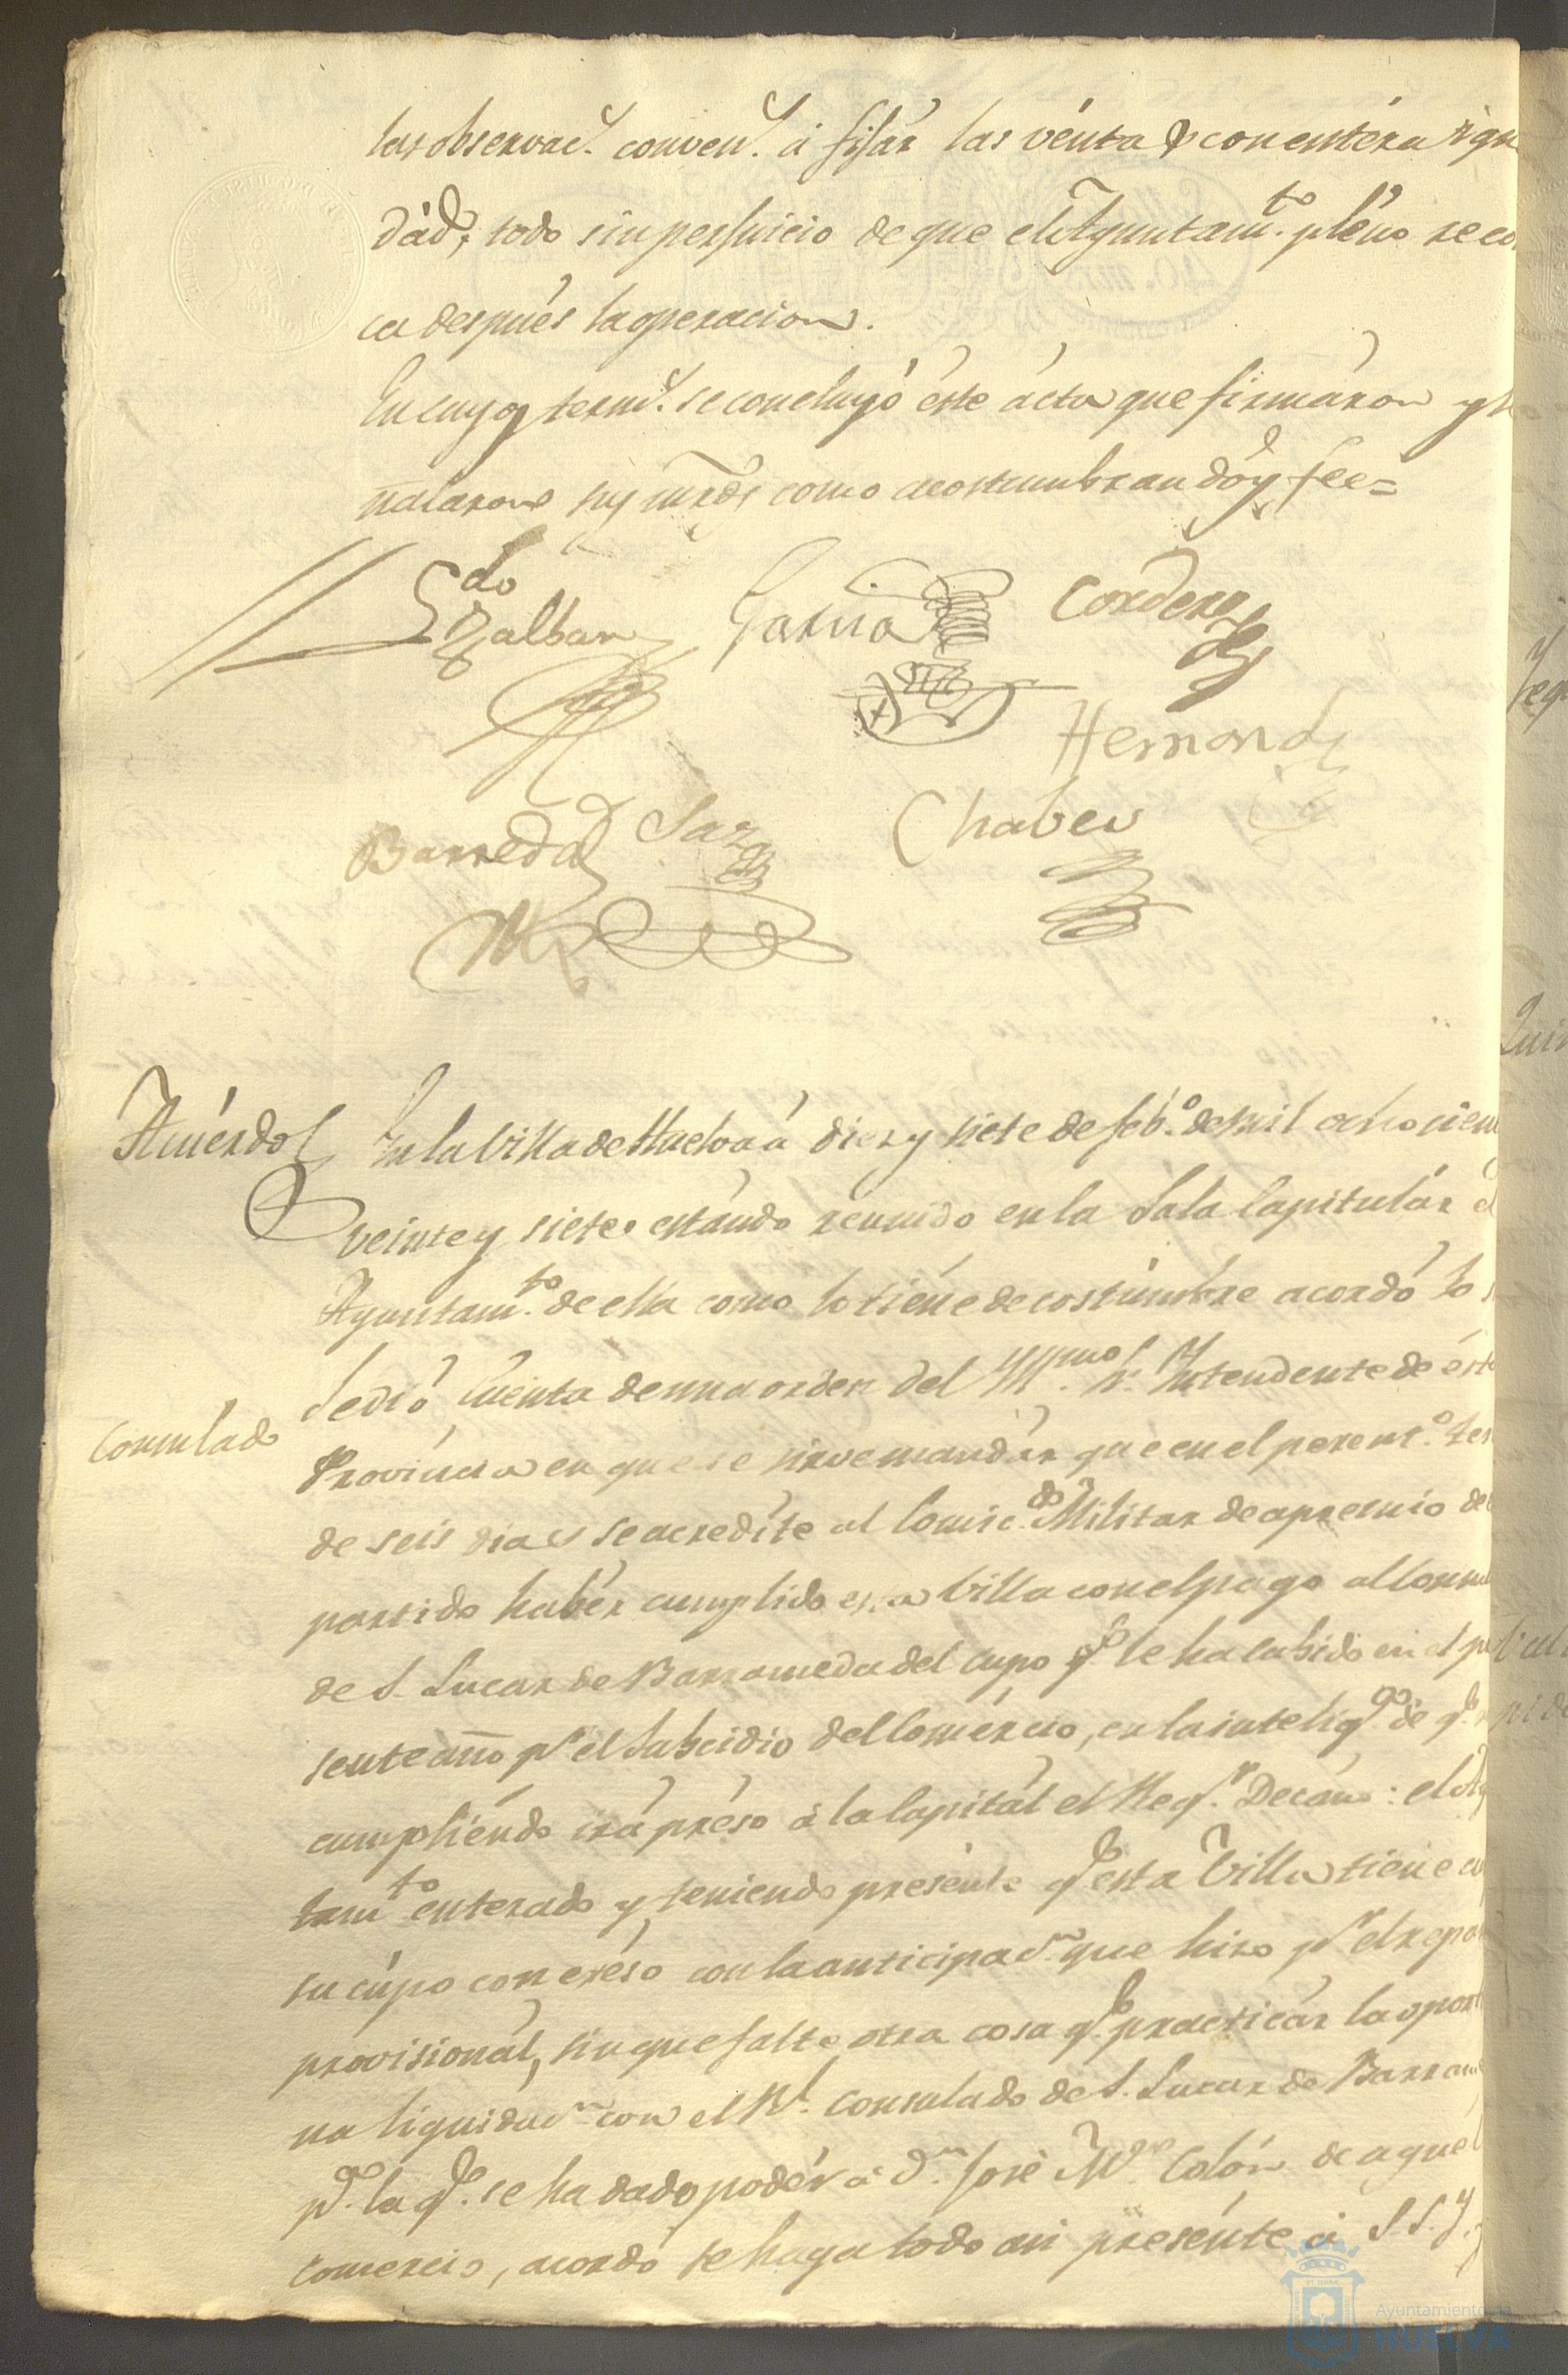 las observac.s conven.s á fijár las vénta y con entéra igua
dád, todo sin perjuicio de que el Ayuntam.to pléno reco
ca despues la operacion.
En cuyos term.s se concluyó éste ácta que firmáron y
ñalaron sus mrds como acostumbran dóy fee=
Ldo
Zalban
Garcia
Cordero
Hernand
Barreda
Saz
Chabes
Acuérdo
En la Villa de Huelva á diez y siete de feb.o de mil ochocien
veinte y siete estándo reunido en la Sala Capitulár el
Ayuntam.to de ella como lo tiéne de costúmbre acordó lo s
Consulado
Se dió Cuénta de una orden del Yll.mo Sr. Yntendente de ésta
Província en que se sirve mandár que en el perent.o ter
de seis dias se acredíte al Comic.do Militar de apremio de
partido habér cumplido esta Villa con el pago al Consul
de S. Lucar de Barrameda del cupo q.e le ha cabido en el pre
sente año p.r el Subcidio del Comércio, en la intelig.a de q.e
cumpliéndo irá préso á la Capitál el Reg.r Decáno: el Ay
tam.to enterado y teniendo presénte q.e esta Villa tiene cu
su cúpo con exéso con la anticipac.n que hizo p.r el repar
provisionál, sin que falte otra cosa q.e practicár la oport
na liquidac.n con el R.l Consulado de S. Lucar de Barrame
p.a la q.e se ha dado podér á D.n José M.a Colón de aquel
comercio, acordó se haga todo asi presénte á S.S.Y.
Ayuntamiento de
HUELVA